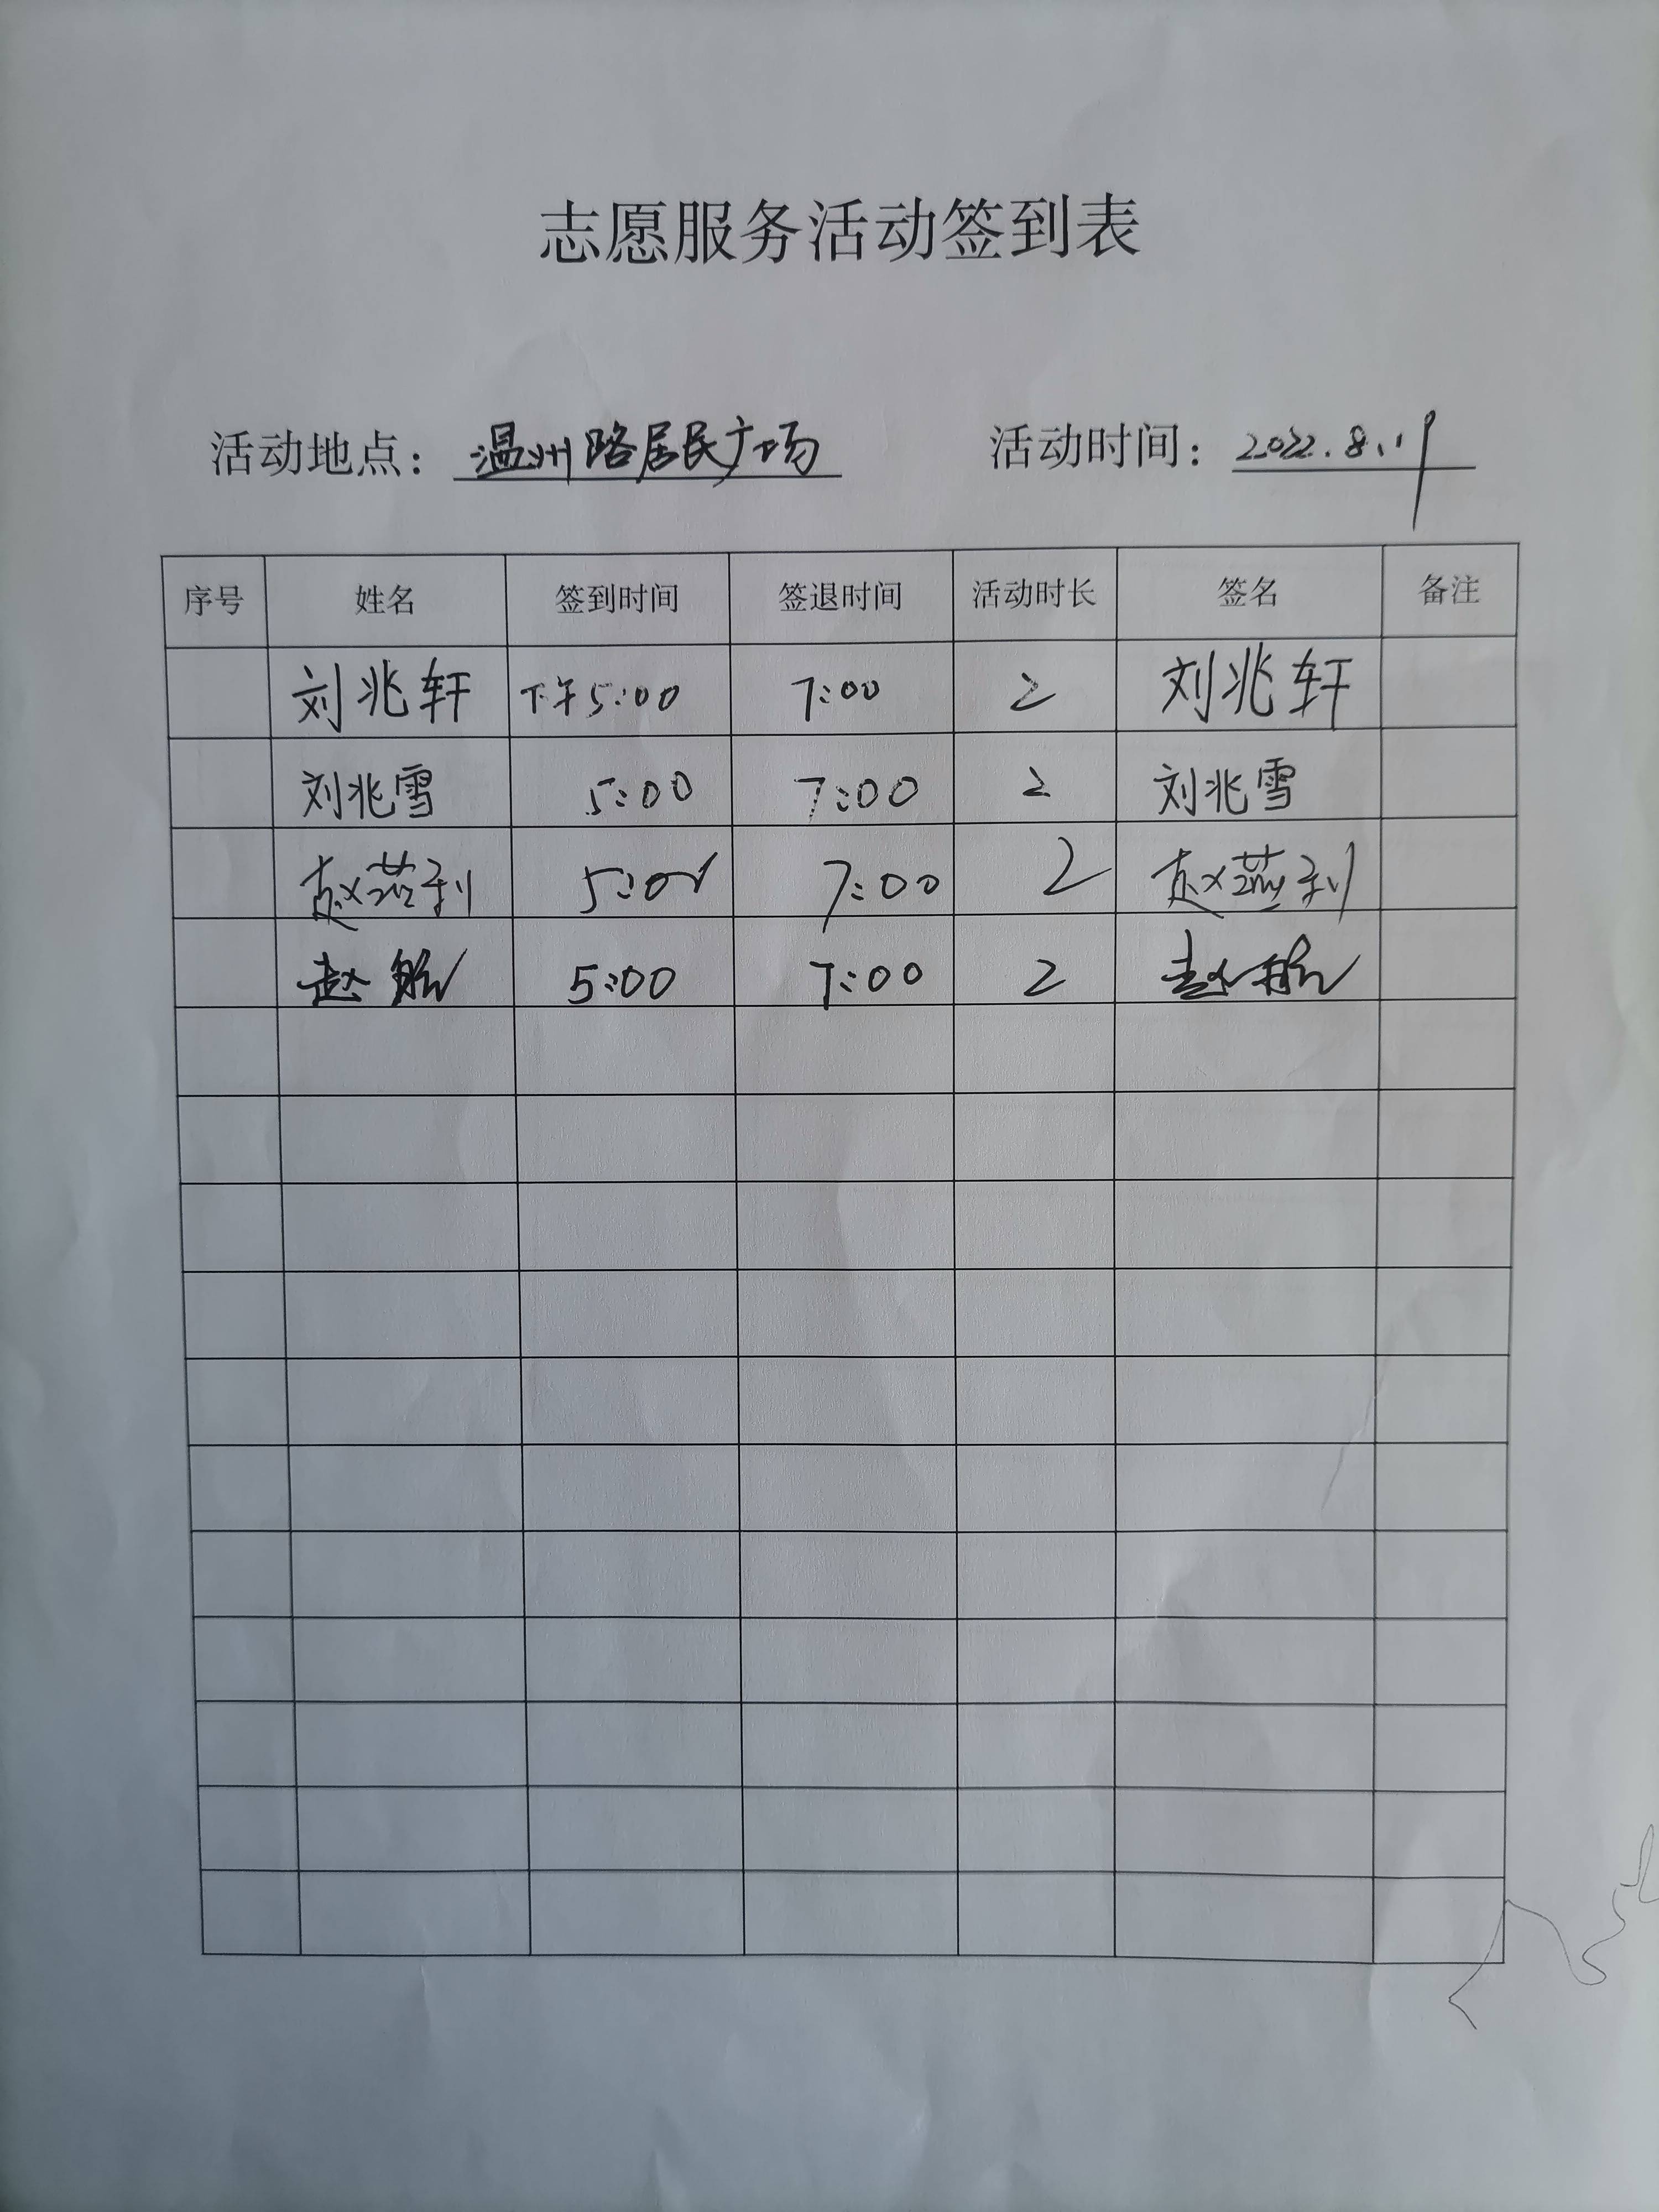 志愿服务活动签到表
活动地点：温州路居民广场 活动时间：2022.8.19
序号 姓名 签到时间 签退时间 活动时长 签名 备注
刘兆轩 下午5:00 7:00 2 刘兆轩
刘兆雪 5:00 7:00 2 刘兆雪
赵燕利 5:00 7:00 2 赵燕利
赵 5:00 7:00 2 赵